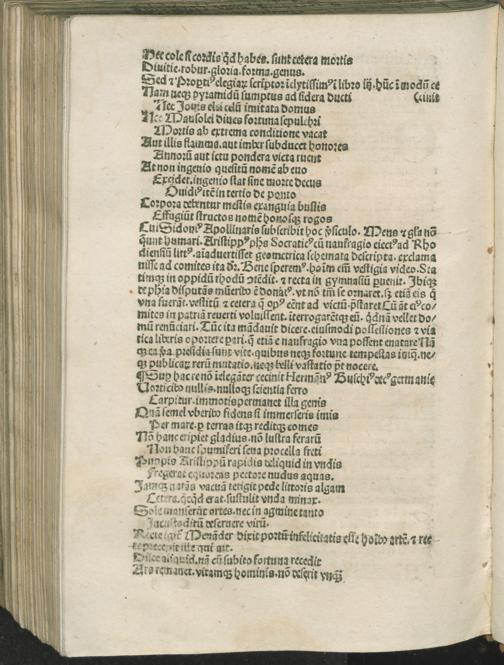 Hec cole si cordis qd habes. sunt cetera mortis
Diuitie. robur. gloria. forma. genus.
Sed ⁊ Proptiꝰ elegiaꝝ scriptor iclytissimꝰ i libro iij. hūc ī modū ce
Nam neqꝫ pyramidū sumptus ad sidera ducti (cinit
Nec Jouis elei celū imitata domus
Nec Mausolei diues fortuna sepulchri
Mortis ab extrema conditione vacat
Aut illis flamma. aut imber subducet honores
Annorū aut ictu pondera victa ruent
At non ingenio quesitū nomē ab euo
Excidet. ingenio stat sine morte decus
Ouidiꝰ itē in tertio de ponto
Corpora debentur mestis exanguia bustis
Effugiūt structos nomē honosqꝫ rogos
Cui Sidoniꝰ Apollinaris subscribit hoc ꝟsiculo. Mens ⁊ gl'a nō
q̄unt humari. Aristippꝰ ph's Socraticꝰ cū naufragio eiectꝰ ad Rho
diensiū litꝰ. aīaduertisset geometrica schemata descripta. exclama
uisse ad comites ita dr̄. Bene speremꝰ. hoīm eīm vestigia video. Sta
timqꝫ in oppidū rhodū ꝯtēdit. ⁊ recta in gymnasiū ꝑuenit. Ibiqꝫ
ꝺe ph'ia disputās mūeribꝰ ē donatꝰ. vt nō tm̄ se ornaret. sꝫ etiā eis q̄
vna fuerāt. vestitū ⁊ cetera q̄ opꝰ eent ad victū. p̄staret Cū āt eiꝰ co
mites in patriā reuerti voluissent. īterrogarētqꝫ eū. qdnā vellet do
mū renūciari. Tūc ita mādauit dicere. eiusmodi possessiones ⁊ via
tica liberis oportere pari. q̄ etiā e naufragio vna possent enatare Nā
qꝫ ea ꝟa. presidia sunt vite. quibus neqꝫ fortune tempestas iniq̄. ne
qꝫ publicaꝝ rerū mutatio. neqꝫ belli vastatio pt nocere.
¶ Sup hac re nō īelegāter cecinit Hermānꝰ Buschiꝰ decꝰ germanie
Uorticibꝰ nullis. nulloqꝫ scientia ferro
Carpitur. immotis permanet illa genis
Quā semel vberibꝰ fidens si immerseris imis
Per mare. p terras itqꝫ reditqꝫ comes
Nō hanc eripiet gladius. nō lustra ferarū
Non hanc spumiferi seua procella freti
Puppis Aristippū rapidis reliquid in vndis
Fregerat equoreas pectore nudus aquas.
Jamqꝫ natās vacuā tetigit pede littoris algam
Cetera. qcqd erat. sustulit vnda minax.
Sole manserūt artes. nec in agmine tanto
ditū deseruere virū.
Recte igiꝉ Menāder dixit portū infelicitatis esse hoībꝰ artē. ⁊ rec
te precepit ille qui ait.
Disce aliquid. nā cū subito fortuna recedit
Ars remanet. vitamqꝫ hominis. nō deserit vnqꝫ̄